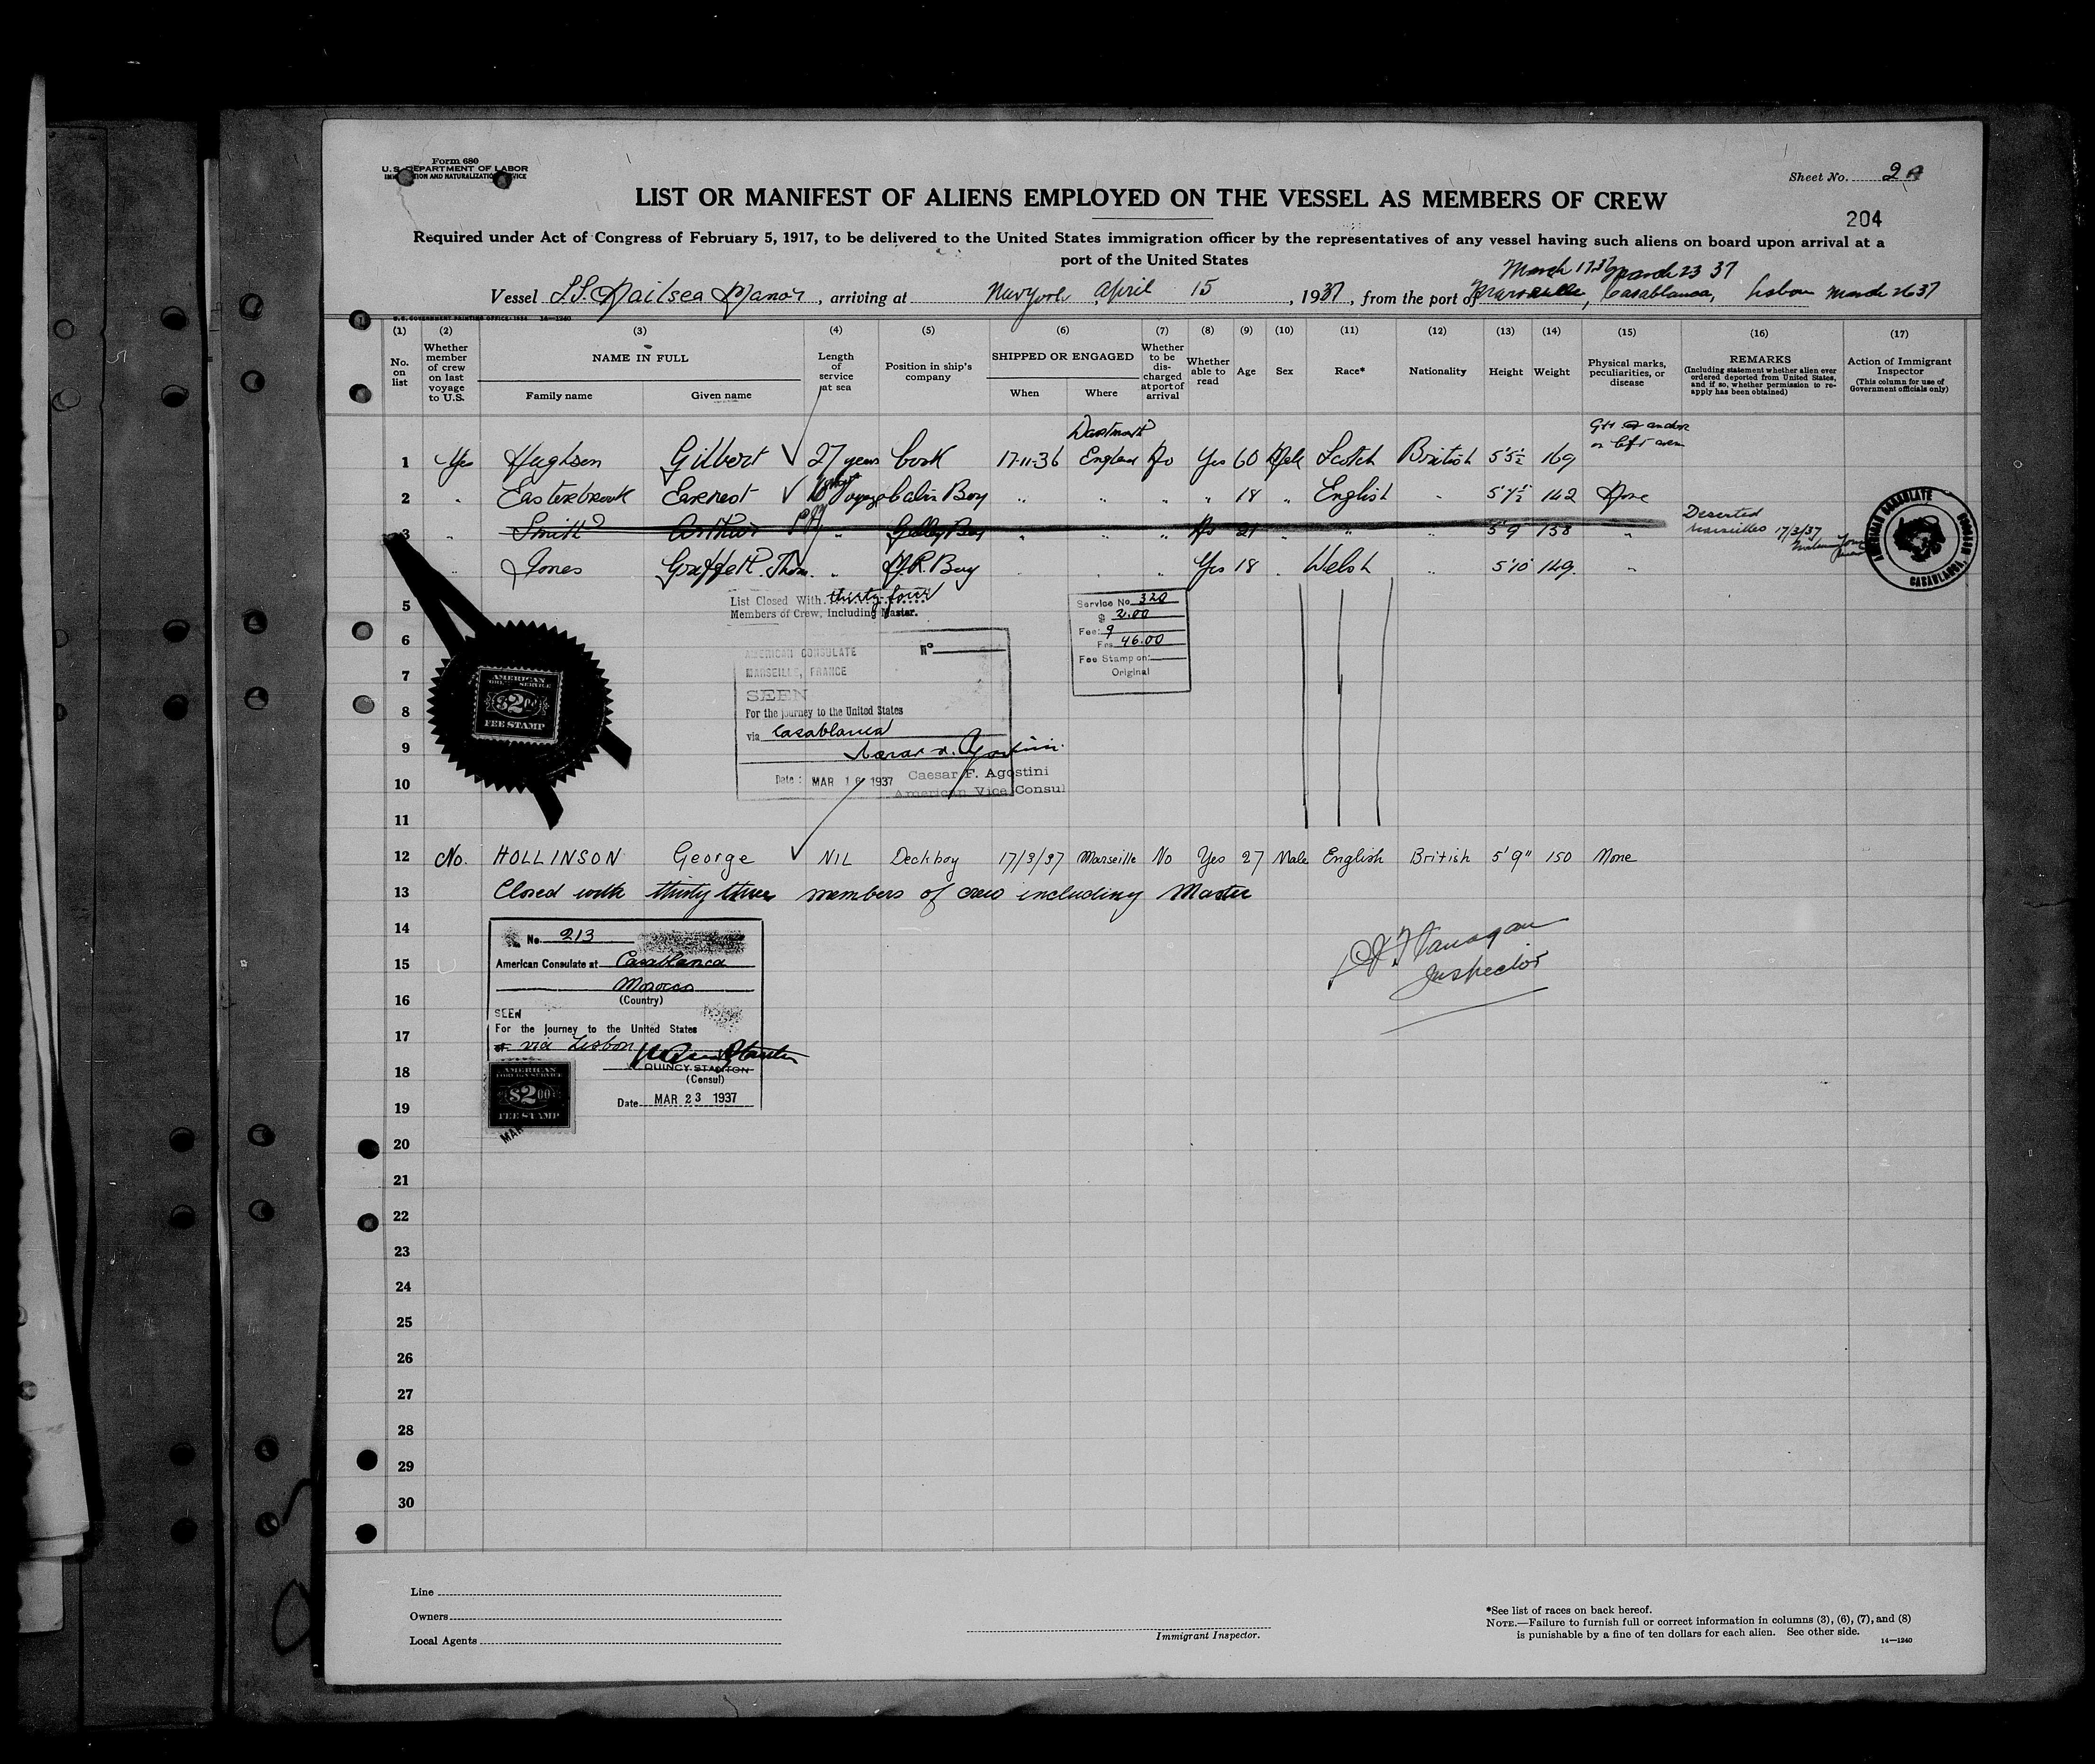 Form 680
U.S. DEPARTMENT OF LABOR
IMMIGRATION AND NATURALIZATION SERVICE
Sheet No. 2A
LIST OR MANIFEST OF ALIENS EMPLOYED ON THE VESSEL AS MEMBERS OF CREW
204
Required under Act of Congress of February 5, 1917, to be delivered to the United States immigration officer by the representatives of any vessel having such aliens on board upon arrival at a
port of the United States
March 17 37 March 23 37
Vessel S.S. Hailsea Manor, arriving at New York April 15, 1937, from the port of Marseille, Casablanca, Lisbon March 26 37
U.S. GOVERNMENT PRINTING OFFICE: 1934 14—1240
(1) (2) (3) (4) (5) (6) (7) (8) (9) (10) (11) (12) (13) (14) (15) (16) (17)
No. on list
Whether member of crew on last voyage to U.S.
NAME IN FULL
Family name
Given name
Length of service at sea
Position in ship's company
SHIPPED OR ENGAGED
When
Where
Whether to be discharged at port of arrival
Whether able to read
Age
Sex
Race*
Nationality
Height
Weight
Physical marks, peculiarities, or disease
REMARKS
(Including statement whether alien ever ordered deported from United States, and if so, whether permission to reapply has been obtained)
Action of Immigrant Inspector
(This column for use of Government officials only)
1 Yes Hughson Gilbert 27 years Cook 17-11-36 England No Yes 60 Male Scotch British 5'5½ 169 anchor on left arm
2 " Easterbrook Earnest Cabin Boy " " " " 18 " English " 5'7½ 142 None
3 " Smith Arthur " Galley Boy " " " No 21 " " " 5'9 158 " Deserted Marseilles 17/3/37
" Jones Griffeth Thom. " M.R. Boy " " " Yes 18 " Welsh " 5'10 149 "
AMERICAN CONSULATE
CASABLANCA, MOROCCO
5
List Closed With thirty four
Members of Crew, Including Master.
Service No. 320
$ 2.00
Fee: 9
Frs 46.00
Fee Stamp on:
Original
6
AMERICAN CONSULATE Nº
7
MARSEILLE, FRANCE
SEEN
8
For the journey to the United States
via Casablanca
9
10
Date: MAR 16 1937 Caesar F. Agostini
American Vice Consul
11
AMERICAN
FOREIGN SERVICE
$2.00
FEE STAMP
12 No. HOLLINSON George NIL Deckboy 17/3/37 Marseille No Yes 27 Male English British 5'9" 150 None
13 Closed with thirty three members of crew including Master
14
No. 213
15
American Consulate at Casablanca
Morocco
16
(Country)
SEEN
17
For the journey to the United States
via Lisbon
18
QUINCY STANTON
(Consul)
19
Date MAR 23 1937
AMERICAN
FOREIGN SERVICE
$2.00
FEE STAMP
MAR
Flanagan
Inspector
20
21
22
23
24
25
26
27
28
29
30
Line
Owners
Local Agents
Immigrant Inspector.
*See list of races on back hereof.
NOTE.—Failure to furnish full or correct information in columns (3), (6), (7), and (8)
is punishable by a fine of ten dollars for each alien. See other side.
14—1240